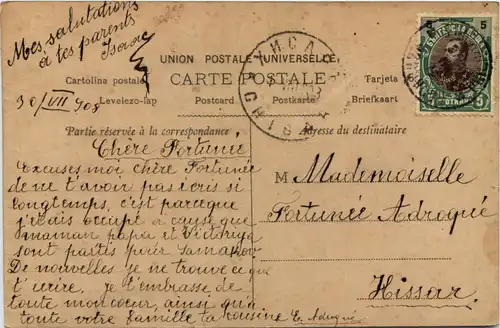 Mes salutations
à tes parents
Isaac
30/VII 908
UNION POSTALE UNIVERSELLE
CARTE POSTALE
Cartolina postale
Tarjeta
Levelezo-lap
Postcard
Postkarte
Briefkaart
Partie réservée à la correspondance
Adresse du destinataire
Chère Fortunée
Excuses moi, chère Fortunée
de ne t'avoir pas écris si
longtemps, c'est parceque
j'étais occupé à cause que
maman papa et Victoriya
sont partis pour Samakov
De nouvelles je ne trouve ce que
t'ecrire, je t'embrasse de
toute mon coeur, ainsi qu'à
toute votre famille ta cousine
M Mademoiselle
Fortunée Adroqué
Hissar
5
5